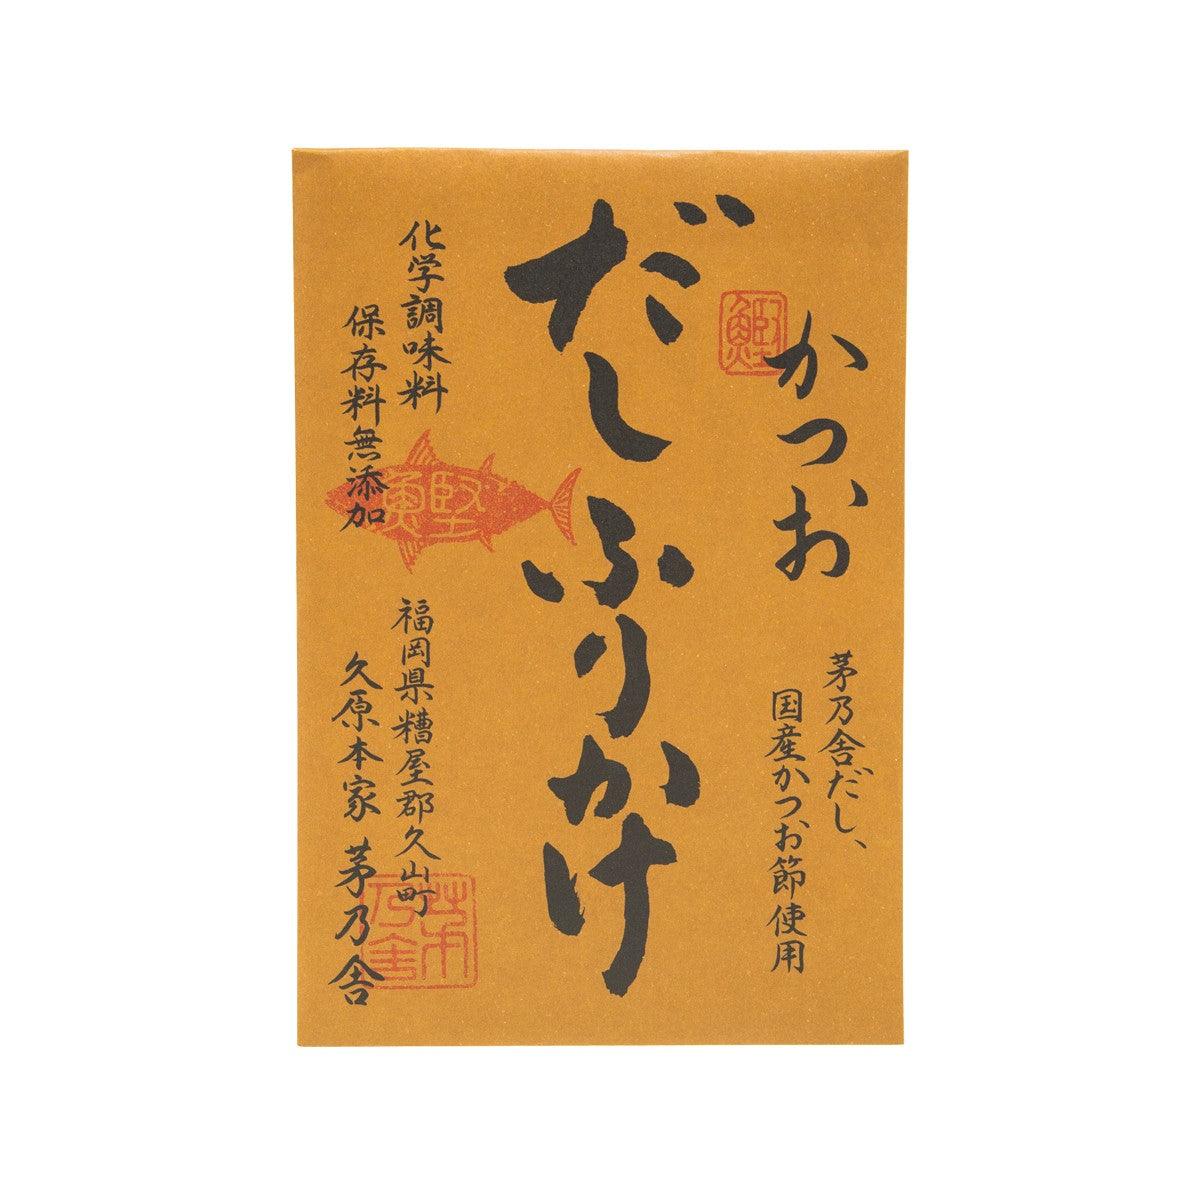 かつお
鰹
茅乃舎だし、
国産かつお節使用
だしふりかけ
化学調味料
保存料無添加
鰹
福岡県糟屋郡久山町
久原本家 茅乃舎
茅乃舎